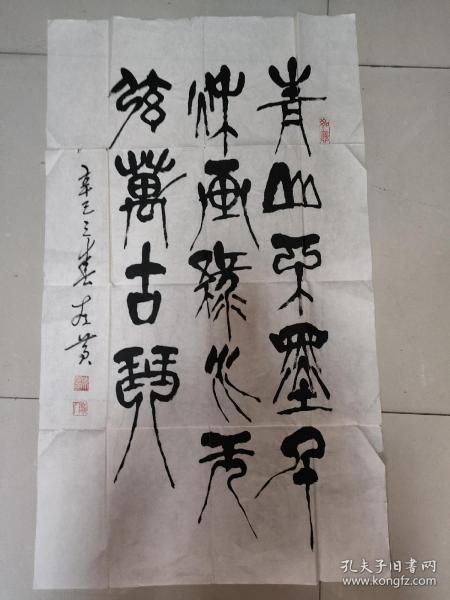 青山不墨千
秌画绿水无
弦萬古琴
辛巳之春 左黄
孔夫子旧书网
www.kongfz.com